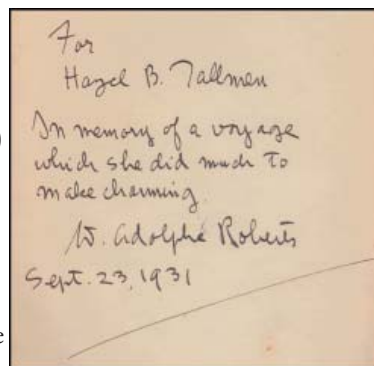 )
For
Hazel B. Tallman
In memory of a voyage
which she did much to
make charming.
W. Adolphe Roberts
Sept. 23, 1931
e